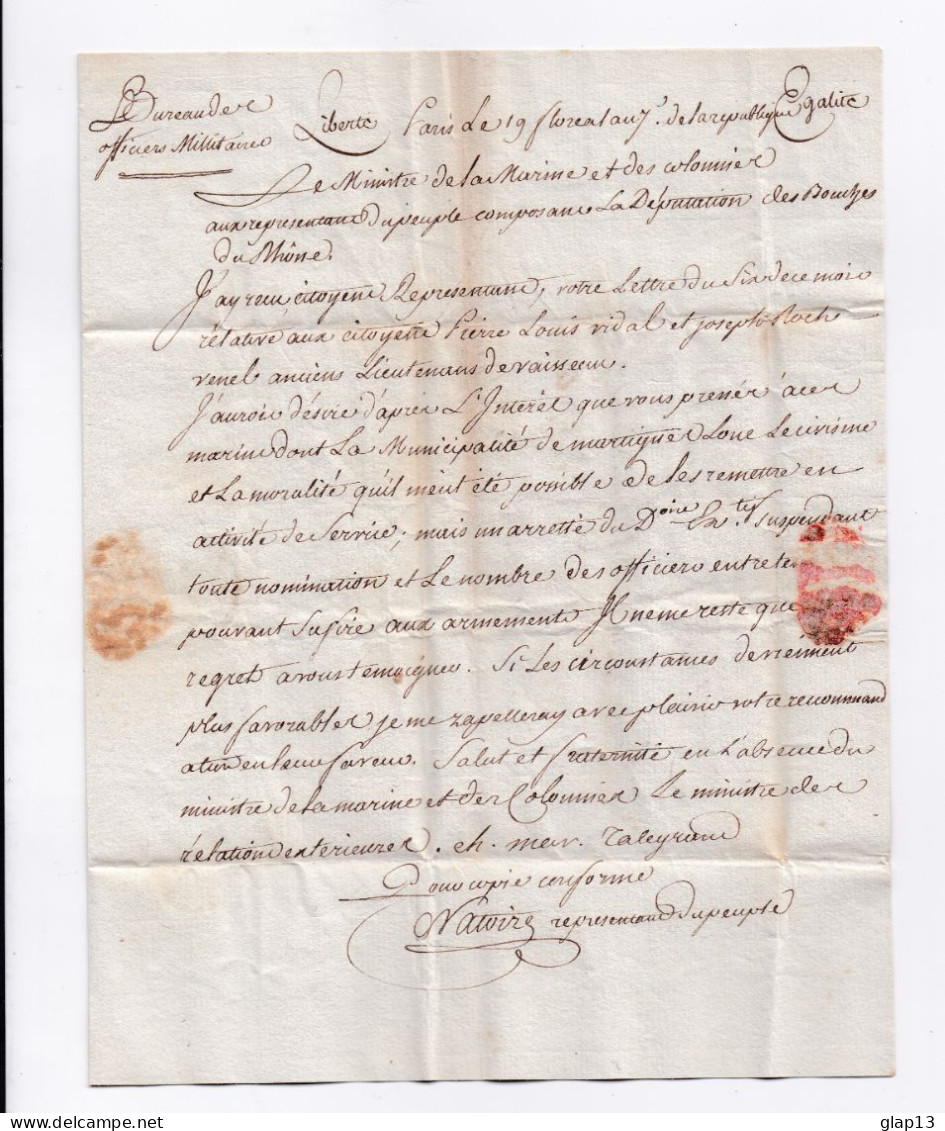 Bureau des
officiers Militaires
Liberté Paris Le 19 floreal an 7e. de la republique Egalité
Le Ministre de la Marine et des colonnies
aux representans du peuple composans La Députation des Bouches
du Rhône.
J'ay reçu, citoyens Representans, votre Lettre du Six de ce mois
rélative aux citoyens Pierre Louis vidal et joseph Roch
venel anciens Lieutenans de vaisseau.
J'aurois désiré d'après L'Intérêt que vous prenés à ces
marins dont La Municipalité de martigues Loue Le civisme
et La moralité qu'il m'eut été possible de les remettre en
activité de Service; mais un arretté du Doire Ex.tif suspendant
toute nomination et Le nombre des officiers entrete
pouvant sufire aux armements Il ne me reste que
regret a vous temoigner. Si Les circonstances devienent
plus favorables je me rapelleray avec plaisir votre recommand
ation en leur faveur. Salut et fraternité en L'absence du
ministre de la marine et des Colonnies Le ministre des
rélations extérieures. ch. mau. Taleyrand
Pour copie conforme
Natoire representant du peuple
glap13